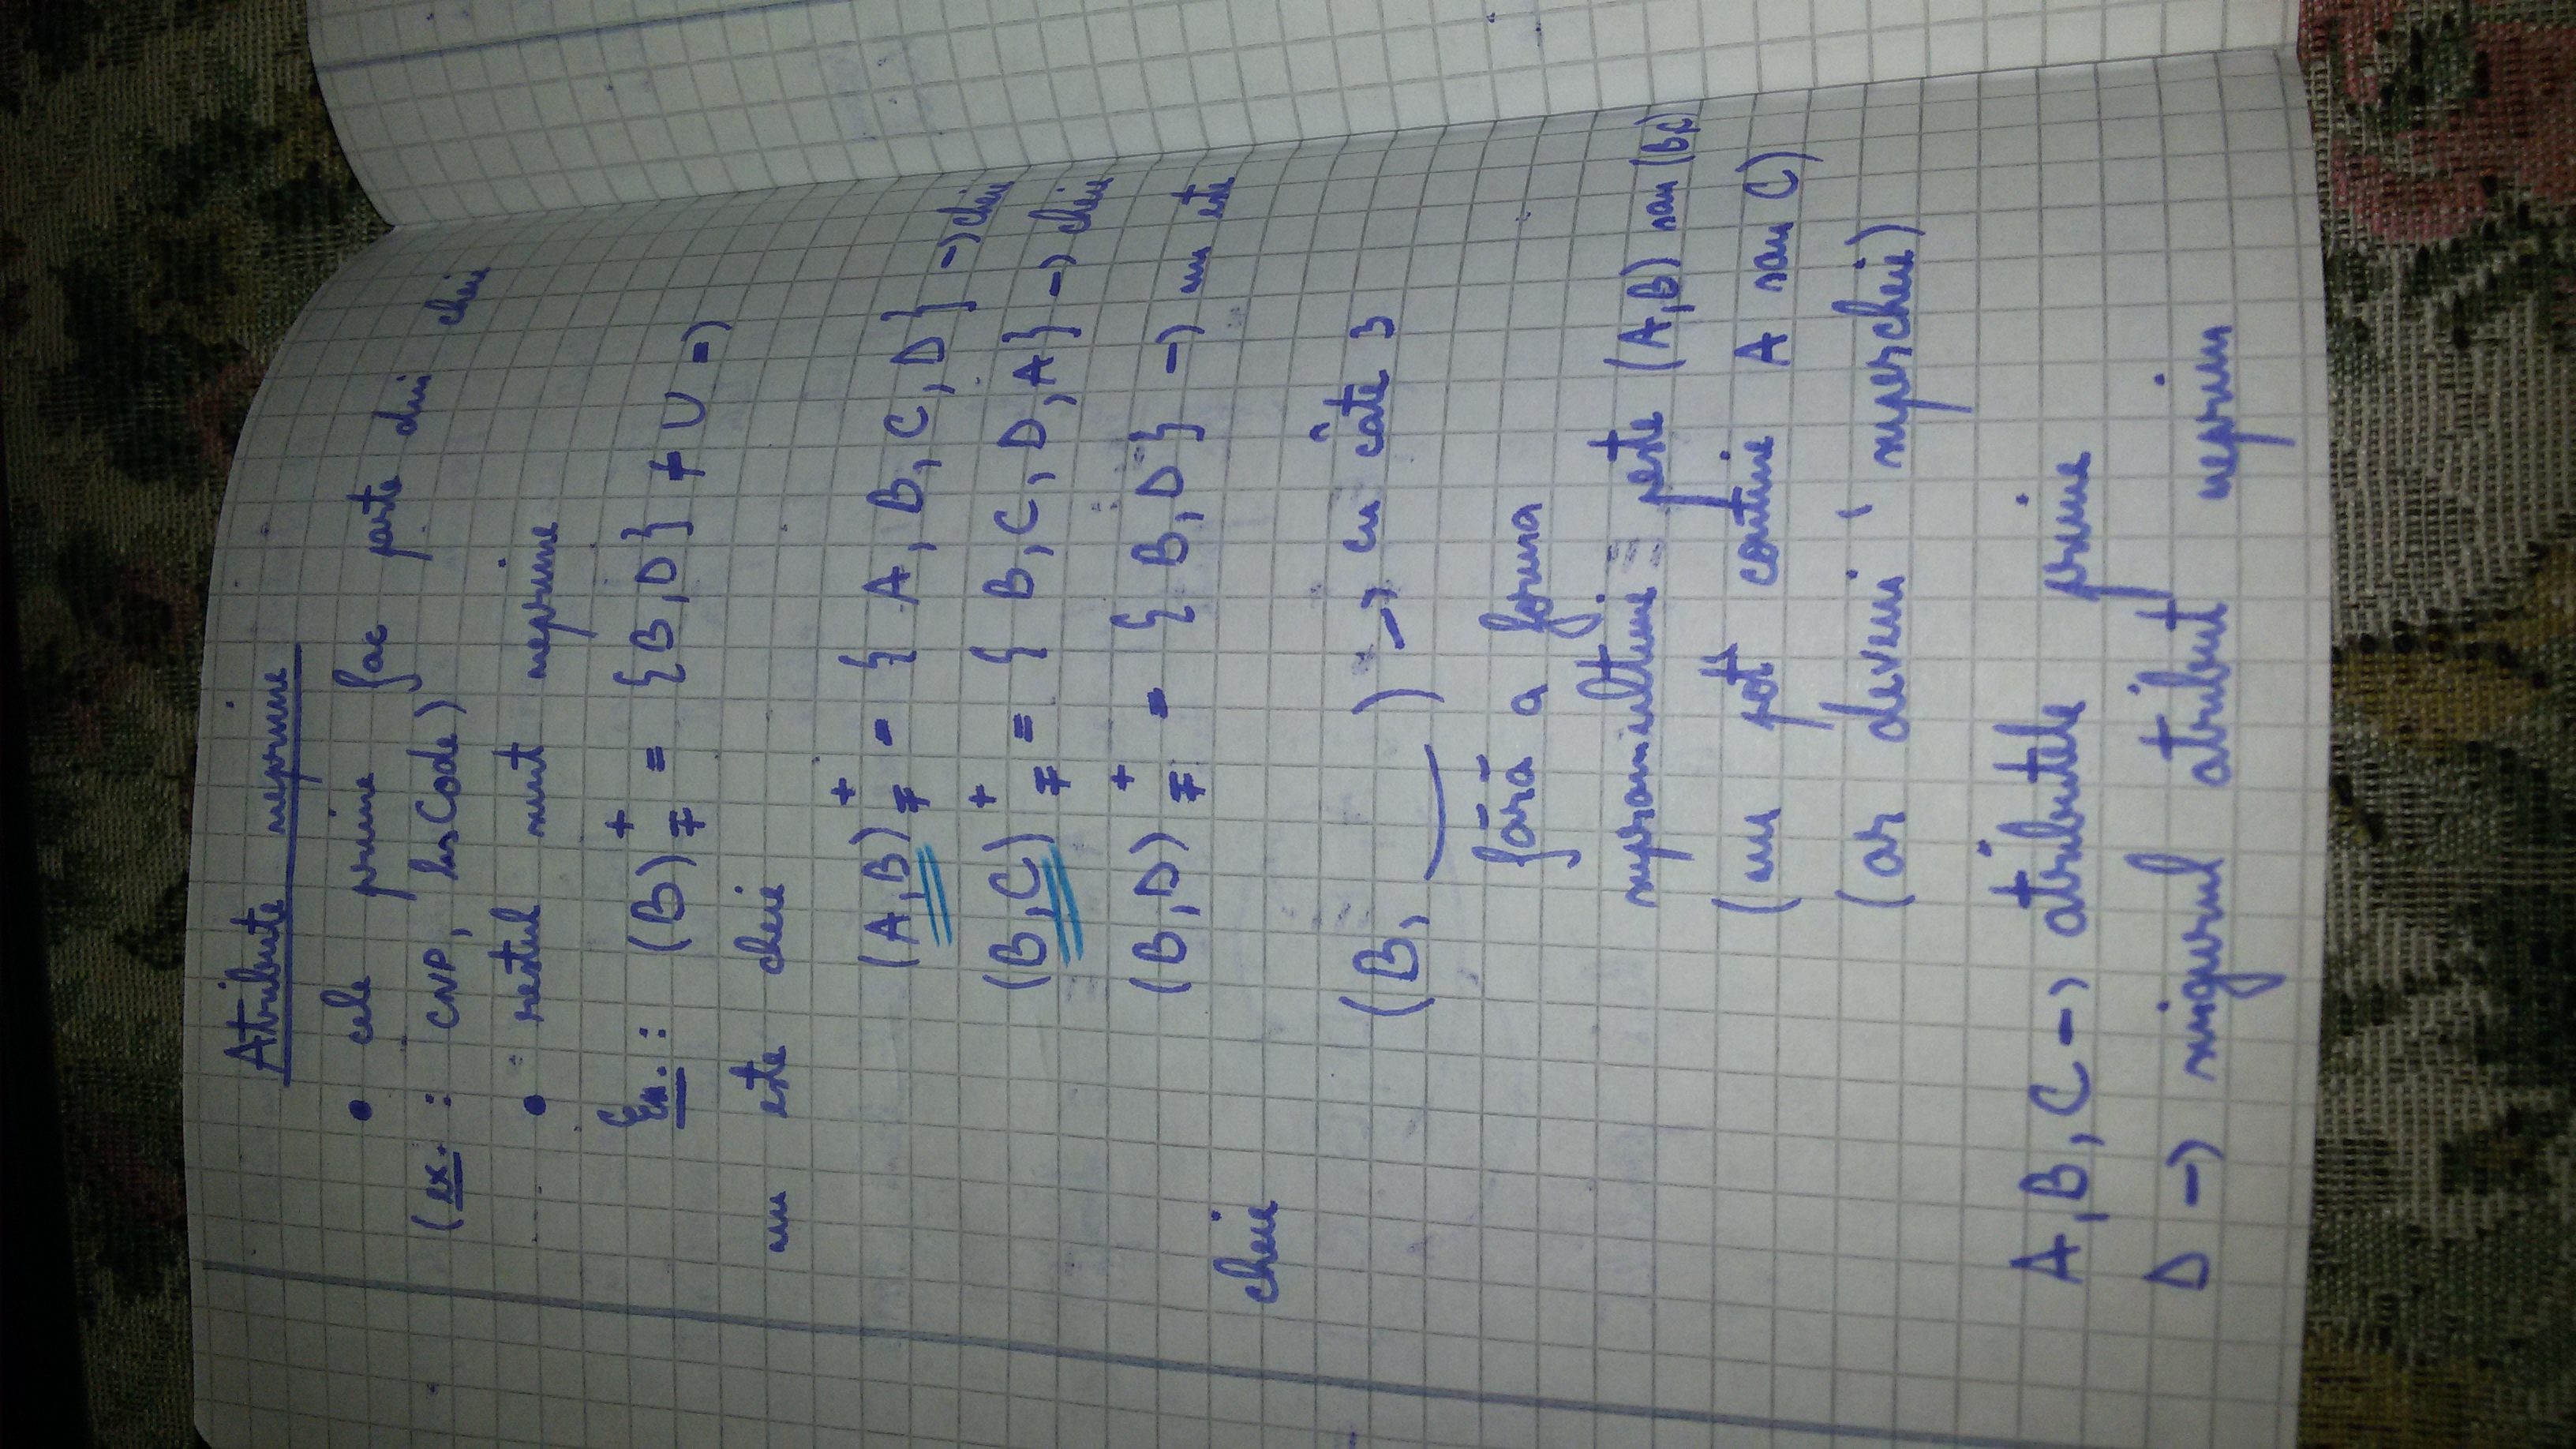 Atribute neprime
• cele prime fac parte din cheie
(ex. : CNP, InsCode)
• restul sunt neprime
Ex. : (B)⁺F = {B,D} ≠ U =>
nu este cheie
(A,B)⁺F = { A, B, C, D} -> cheie
(B,C)⁺F = { B, C, D, A} -> cheie
(B,D)⁺F = { B, D} -> nu este
cheie
(B, __ ) -> cu câte 3
fără a forma
supramultimi peste (A,B) sau (B,C)
(nu pot contine A sau C)
(ar deveni supercheie)
A, B, C -> atributele prime
D -> singurul atribut neprim